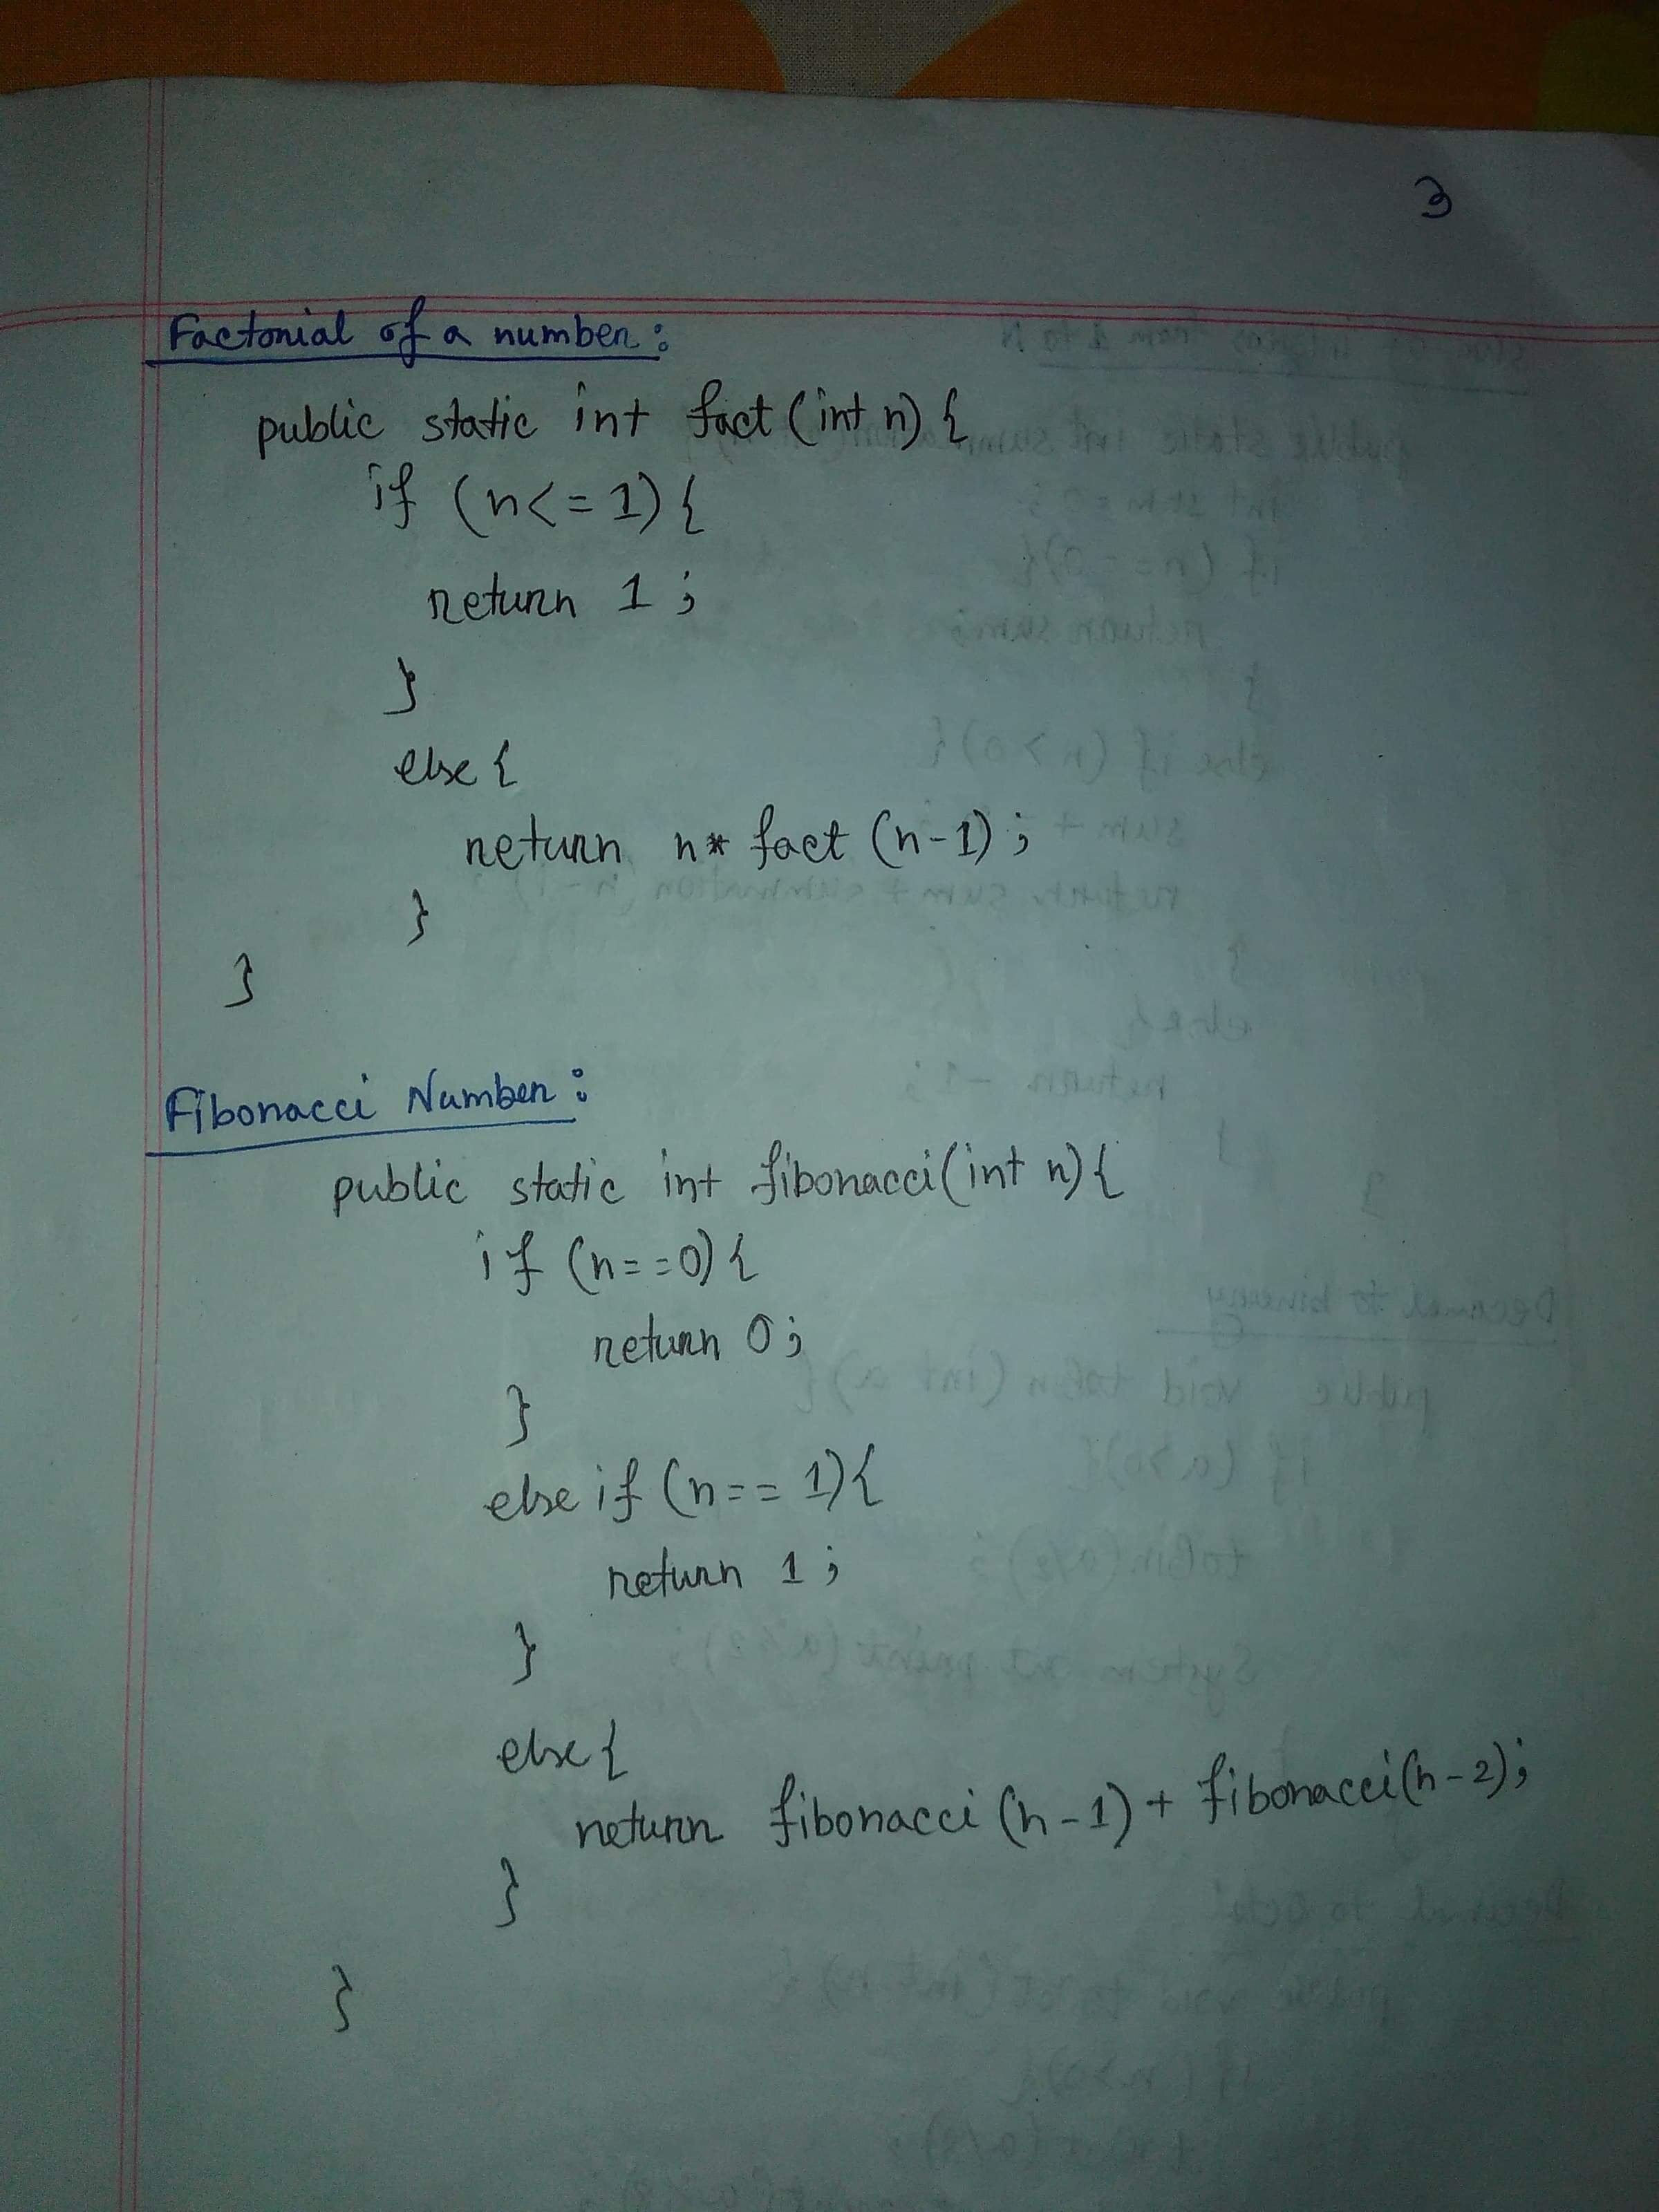 3
Factorial of a number:
public static int fact (int n) {
if (n<=1) {
return 1;
}
else {
return n* fact (n-1);
}
}
Fibonacci Number:
public static int fibonacci(int n) {
if (n==0) {
return 0;
}
else if (n==1) {
return 1;
}
else {
return fibonacci (n-1) + fibonacci(n-2);
}
}